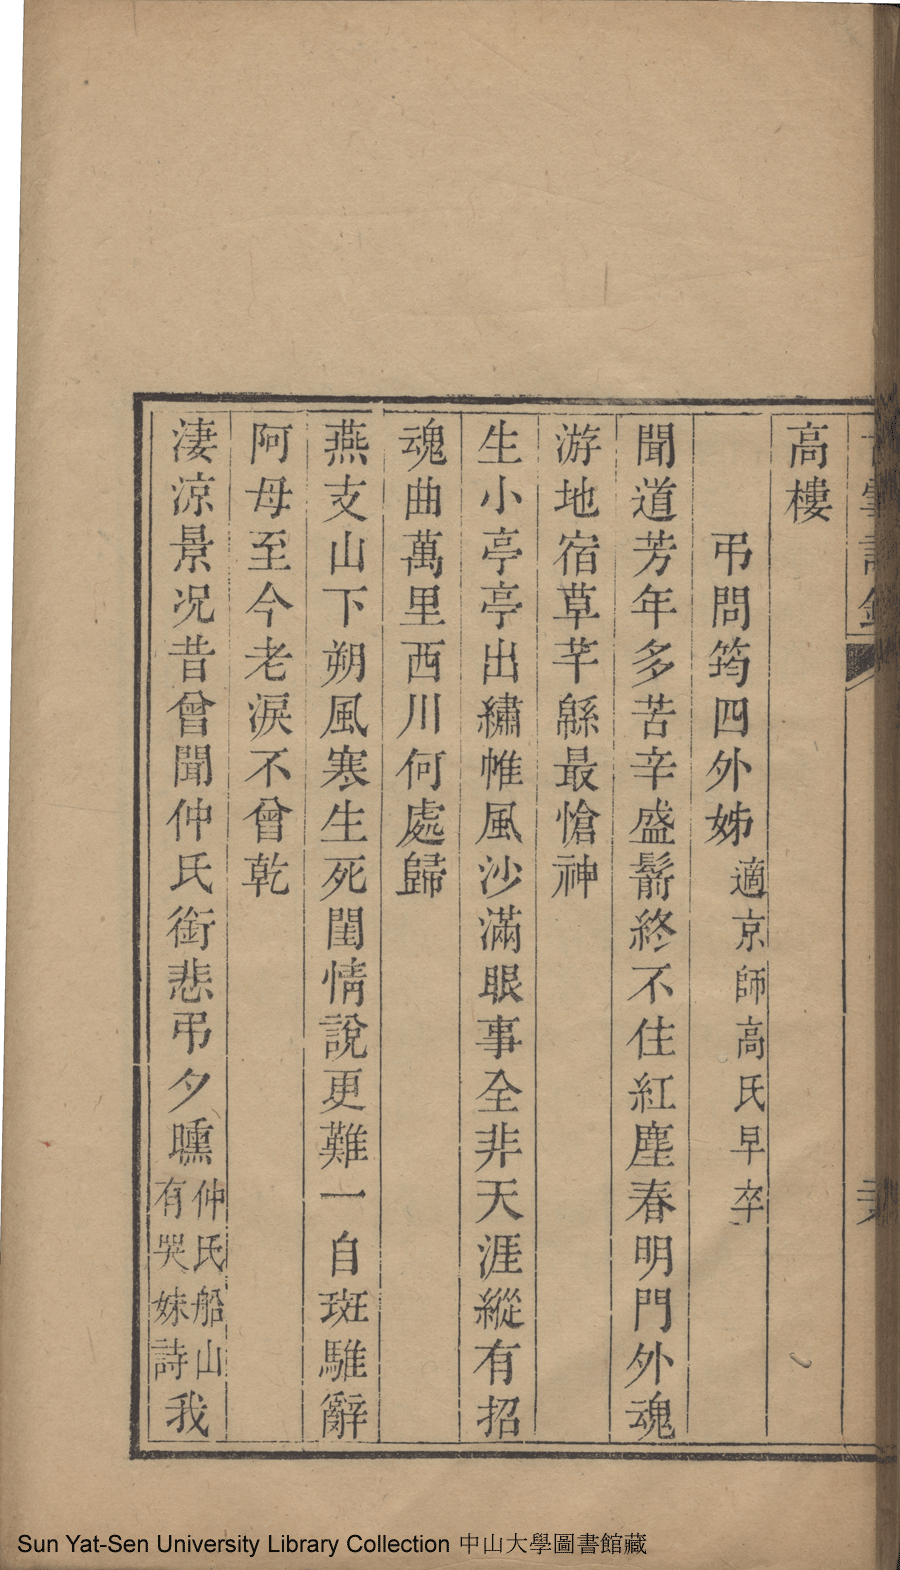 高樓
弔問筠四外姊適京師高氏早卒
聞道芳年多苦辛盛鬋終不住紅塵春明門外魂
游地宿草芊緜最愴神
生小亭亭出繡帷風沙滿眼事全非天涯縱有招
魂曲萬里西川何處歸
燕支山下朔風寒生死閨情說更難一自斑騅辭
阿母至今老淚不曾乾
淒涼景况昔曾聞仲氏銜悲弔夕曛仲氏船山有哭妹詩我
Sun Yat-Sen University Library Collection 中山大學圖書館藏